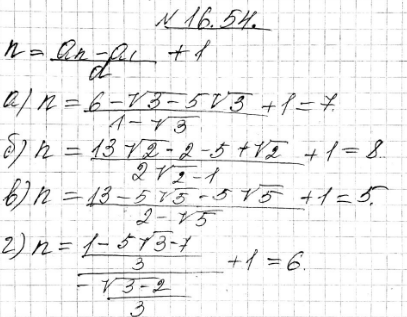 № 16.54.
n = (an - a1)/d + 1
а) n = (6 - √3 - 5√3)/(1 - √3) + 1 = 7.
б) n = (13√2 - 2 - 5 + √2)/(2√2 - 1) + 1 = 8
в) n = (13 - 5√5 - 5√5)/(2 - √5) + 1 = 5.
г) n = ((1 - 5√3 - 7)/3)/(-(√3 - 2)/3) + 1 = 6.